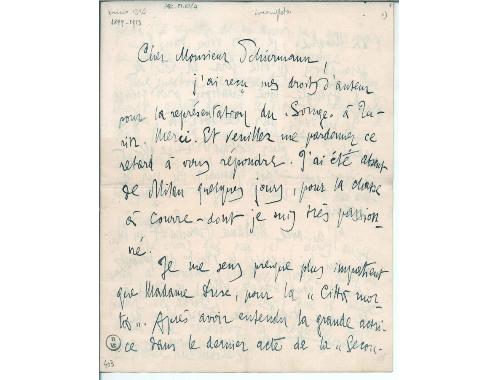 1899-1913
Cher Monsieur Schürmann,
j'ai reçu mes droits d'auteur
pour la représentation du "Songe" à Tu-
rin. Merci. Et veuillez me pardonner ce
retard à vous répondre. J'ai été absent
de Milan quelques jours, pour la chasse
à courre - dont je suis très passion-
né.
Je me sens presque plus impatient
que Madame Duse, pour la "Città mor-
ta". Après avoir entendu la grande actri-
ce dans le dernier acte de la "Secon-